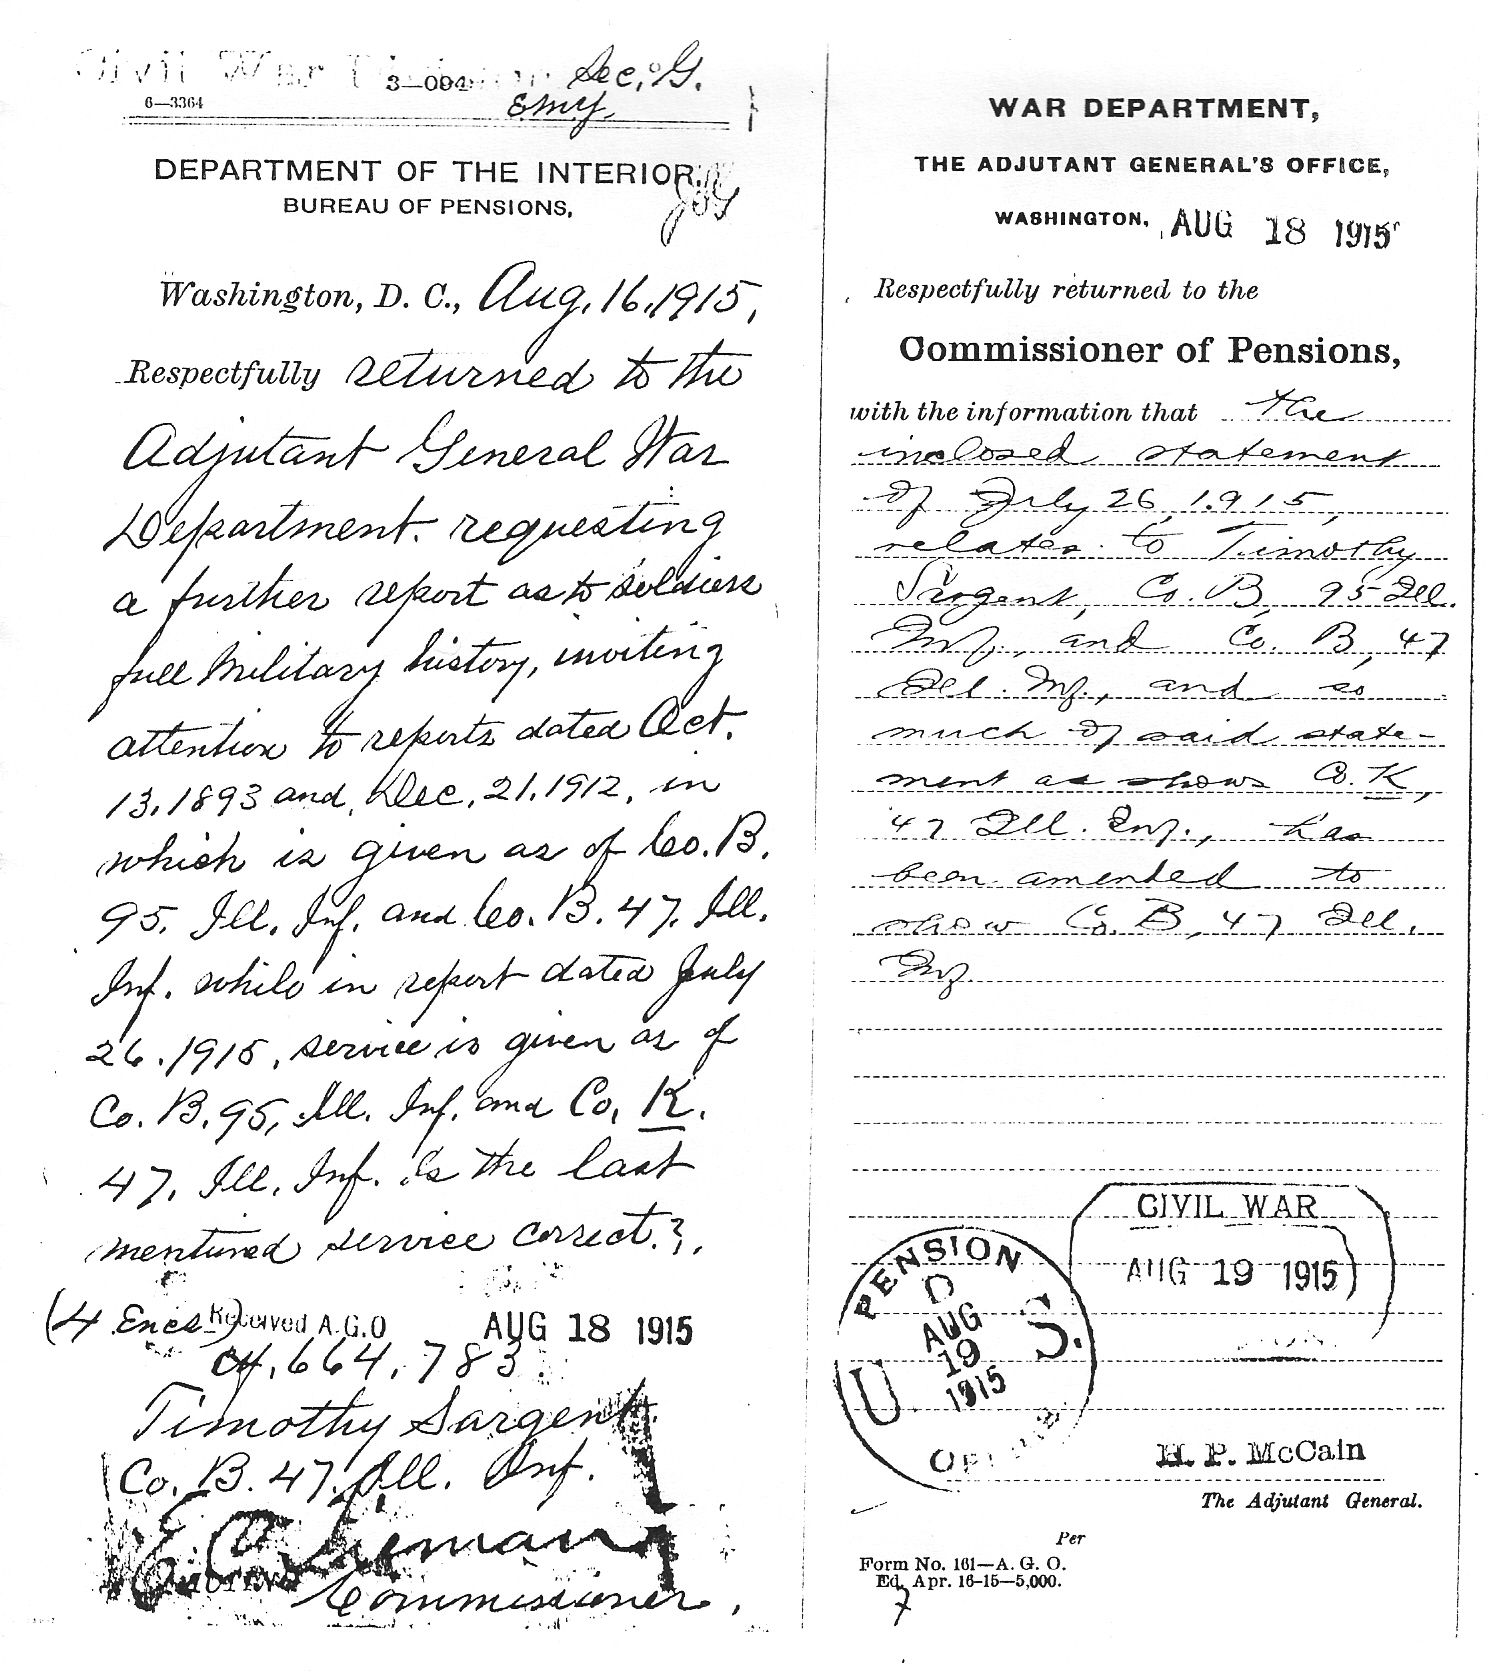 Civil War
3—094
Sec. G.
6—3364
EMY.
DEPARTMENT OF THE INTERIOR,
BUREAU OF PENSIONS,
Washington, D. C., Aug. 16, 1915,
Respectfully returned to the
Adjutant General War
Department. requesting
a further report as to soldiers
full Military history, inviting
attention to reports dated Oct.
13, 1893 and, Dec, 21, 1912, in
which is given as of Co. B.
95. Ill. Inf. and Co. B. 47. Ill.
Inf. while in report dated July
26. 1915, service is given as of
Co. B. 95, Ill. Inf. and Co, K.
47. Ill. Inf. Is the last
mentioned service correct.?.
(4 Encs) Received A.G.O AUG 18 1915
664,783
Timothy Sargent.
Co. B. 47. Ill. Inf.
Commissioner.
WAR DEPARTMENT,
THE ADJUTANT GENERAL'S OFFICE,
WASHINGTON, AUG 18 1915
Respectfully returned to the
Commissioner of Pensions,
with the information that the
inclosed statement
of July 26, 1915,
relates to Timothy
Sargent, Co. B, 95 Ill.
Inf., and Co. B, 47
Ill. Inf., and so
much of said state-
ment as shows Co. K,
47 Ill. Inf., has
been amended to
show Co. B, 47 Ill.
Inf.
CIVIL WAR
AUG 19 1915
PENSION
D
AUG
19
1915
U. S.
OFFICE
H. P. McCain
The Adjutant General.
Per
Form No. 161—A. G. O.
Ed. Apr. 16-15—5,000.
7